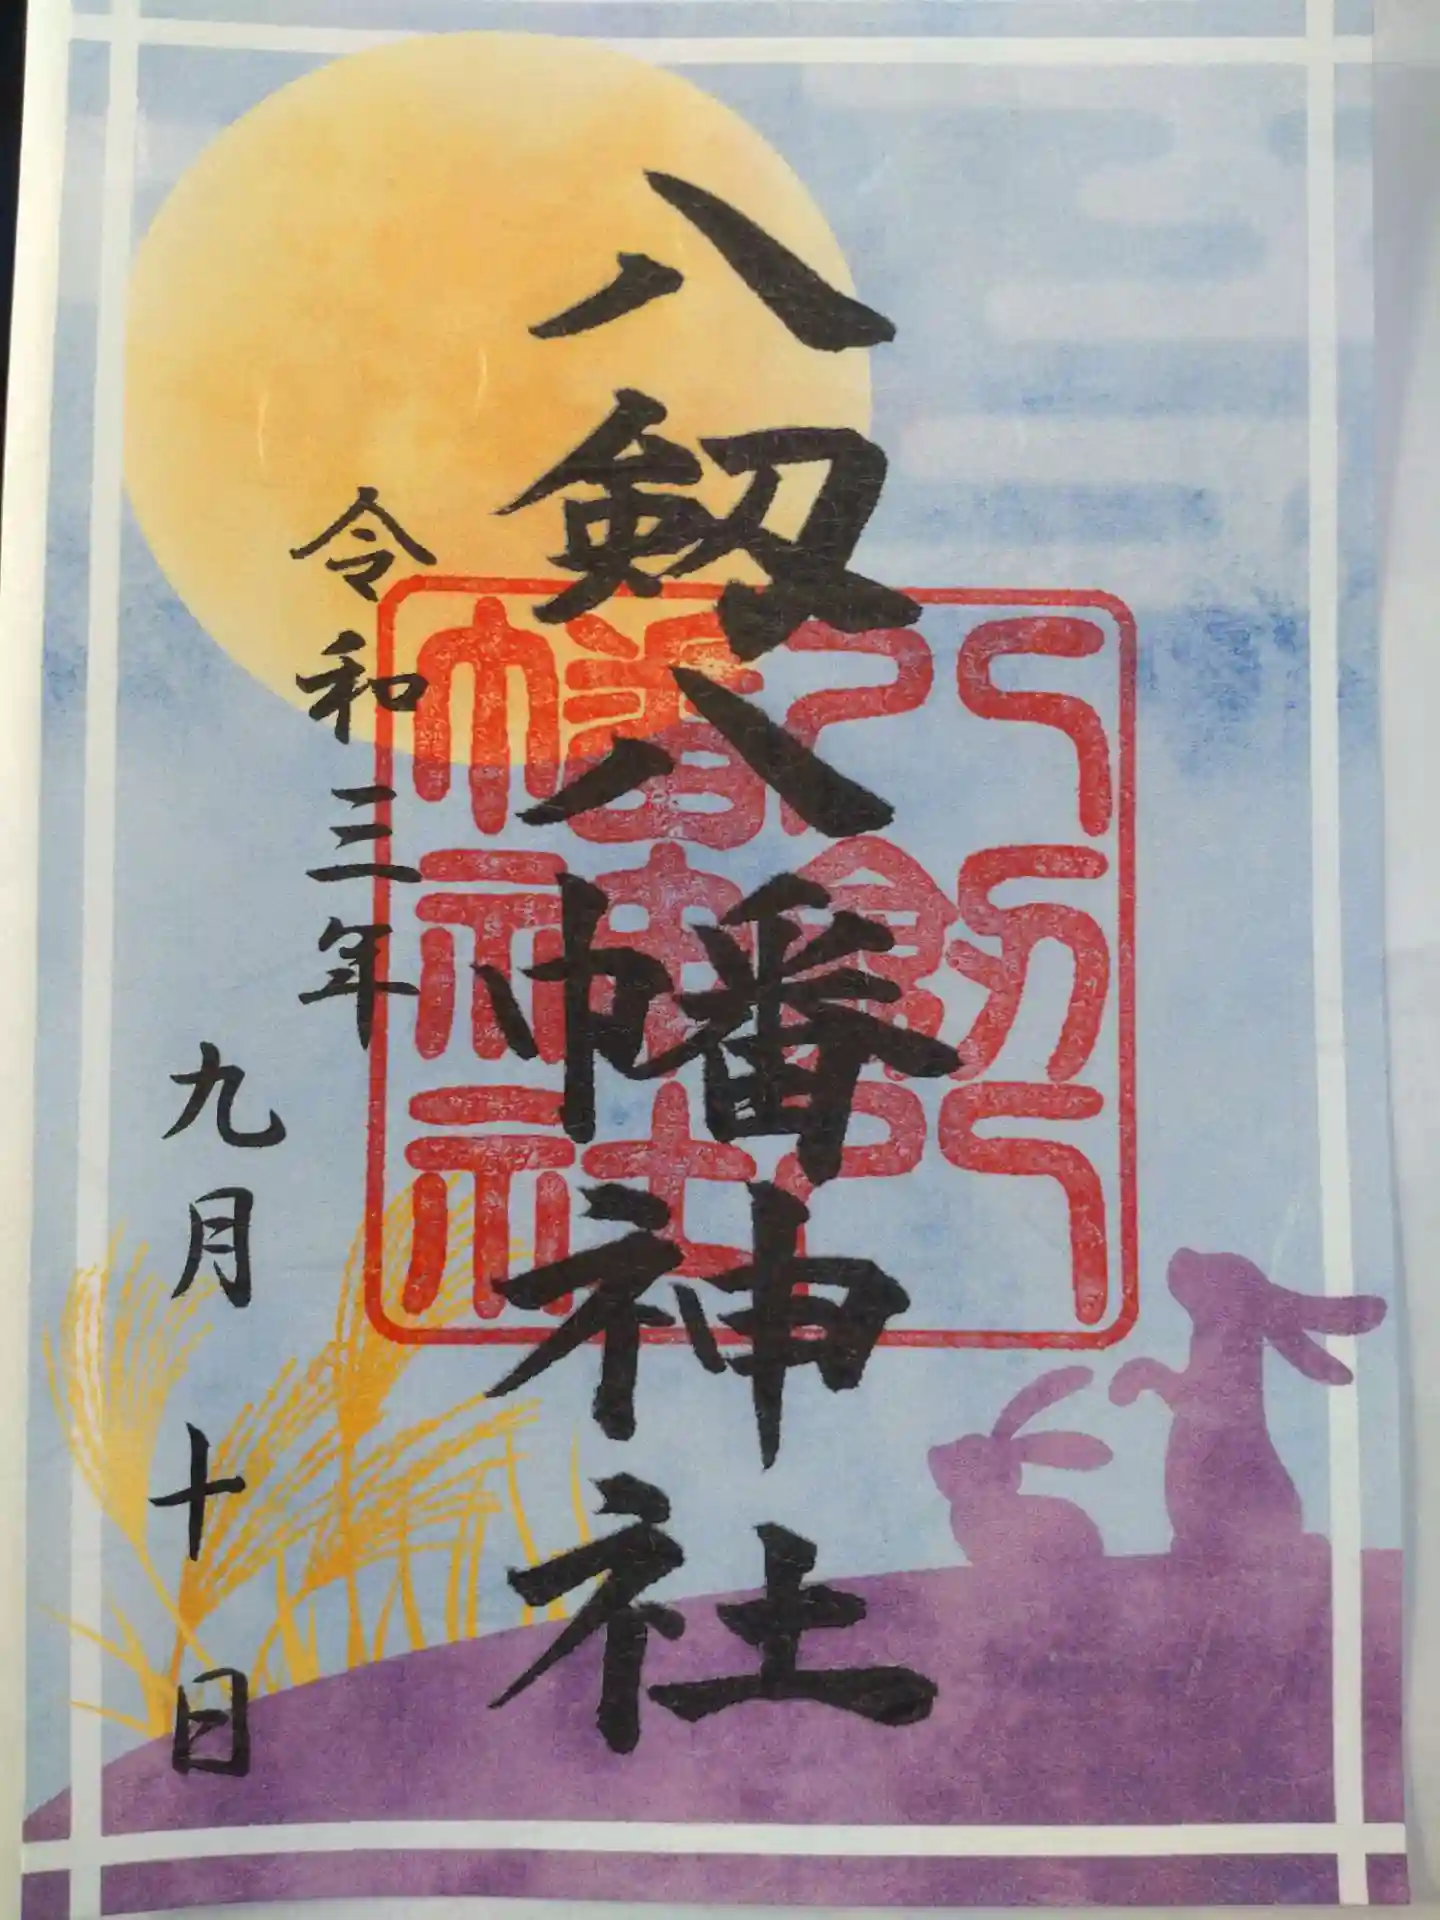 八剱八幡神社
令和三年
九月十日
八剱八
幡神社